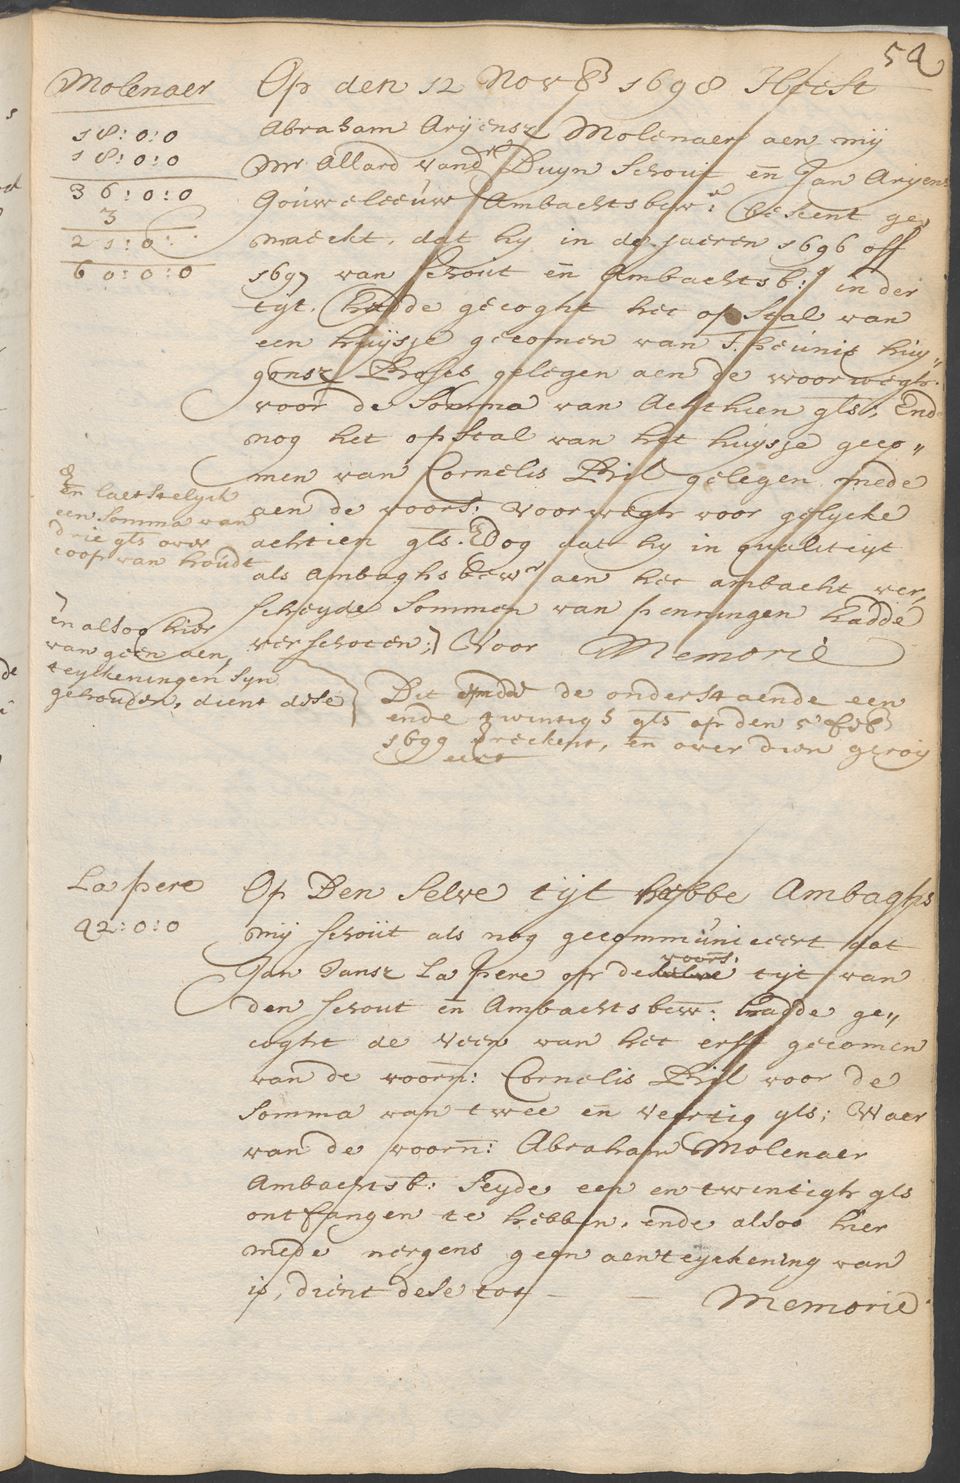 54
Molenaer
18:0:0
18:0:0
36:0:0
3
21:0:
60:0:0
Op den 12 Novb 1698 Heeft
Abraham Arijensz Molenaer aen mij
Mr Allard vandr Duyn Schout en Jan Arijensz
Gouweleeuw Ambachtsbewr: bekent ge,,
maeckt, dat hy in de jaeren 1696 off
1697 van schout en Ambachtsb: in der
tyt. hadde gecoght het opstal van
een huijsje gecomen van Theunis huy,,
gensz gelegen aen de voorwegh
voor de Somma van Achthien gls; Ende
nog het opstal van het huysje geco,,
men van Cornelis Pil gelegen mede
aen de voors: Voorwegh voor gelycke
achtien gls. Dog dat hy in qualiteyt
als Ambaghsbewr aen het ambacht ver,,
scheyde Sommen van penningen hadde
verschoten; Voor Memorie
En laetstelyck
een Somma van
drie gls over
coop van houdt
en alsoo hier
van geen aen,,
teyckeningen syn
gehouden, dient dese
Dit de onderstaende een
ende twintigh gls op den 5 feb
1699 , en over dien geroy
eert
La pere
42:0:0
Op Den Selve tijt hebbe Ambaghs
mij schout als nog gecommuniceert dat
Jan Jansz La Pere op de voors: tijt van
den schout en Ambachtsbew: hadde ge,,
coght de Veen van het erff gecomen
van de voorn: Cornelis Pil voor de
Somma van twee en veertig gls; Waer
van de voorn: Abraham Molenaer
Ambachtsb: Seyde een en twintigh gls
ontfangen te hebben, ende alsoo hier
mede nergens geen aenteyckening van
is, dient dese tot - - Memorie